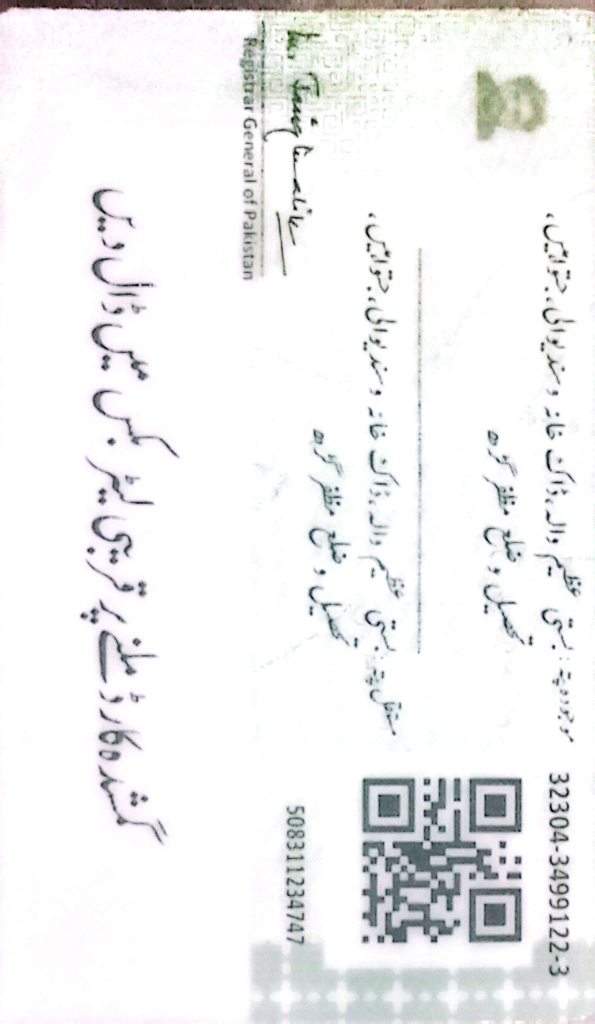 32304-3499122-3
موجودہ پتہ: بستی عظیم والہ، ڈاک خانہ وسندیوالی، جتوائیں،
تحصیل و ضلع مظفر گڑھ
مستقل پتہ: بستی عظیم والہ، ڈاک خانہ وسندیوالی، جتوائیں،
تحصیل و ضلع مظفر گڑھ
508311234747
Registrar General of Pakistan
گمشدہ کارڈ ملنے پر قریبی لیٹر بکس میں ڈال دیں